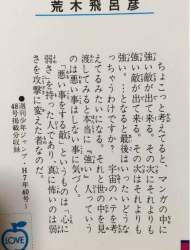 荒木飛呂彦
ちょこっと考えてると、マンガの中に
強い敵が出て来る。その次にそれよりも
強い敵が出て来る。その次はそれよりも
強い…となると最後はいったいどうな
っちゃうわけですか？宇宙のハテを考
えてるみたいになる。それと世の中を見
渡してみると本当に“強い”っていう
のは悪い事はしない事に気づく。
「悪い事をする敵」というものは「心に
弱さ」を持った人であり、真に怖いのは弱
さを攻撃に変えた者なのだ。
●週刊少年ジャンプ・H7年40号〜
48号掲載分収録
LOVE